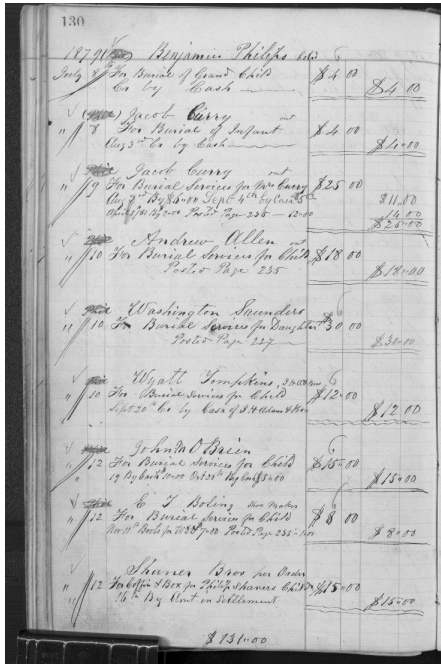 130
1879 Benjamin Philips Cold
July 8 For Burial of Grand Child $4 00
Cr by Cash $4 00
Jacob Curry out
" 8 For Burial of Infant $4 00
Aug 3rd Cr by Cash $4=00
Jacob Curry out
" 9 For Burial Services for Mrs Curry $25 00
Aug 3rd By $6=00 Sept 4th by Cash 5 $11.00
Posted Page 235 — 12=00 14 00
$25=00
Andrew Allen out
" 10 For Burial Services for Child $18 00
Posted Page 235 $18=00
Washington Saunders
" 10 For Burial Services for Daughter $30 00
Posted Page 227 $30=00
Wyatt Tompkins
" 10 For Burial Services for Child $12=00
Sept 20th Cr by Cash of $12 00
John M O Brien
" 12 For Burial Services for Child $15=00
19 By Cash 10=00 Oct 25th By Cash $5=00 $15=00
E T Boling Shoe Maker
" 12 For Burial Services for Child $8 00
Nov 11th Boots for Posted Page 235 $8=00
Shaner Bros per Order
" 12 For Coffin & Box for Philip Shaners Child $15=00
16th By Amt in Settlement $15=00
$131=00